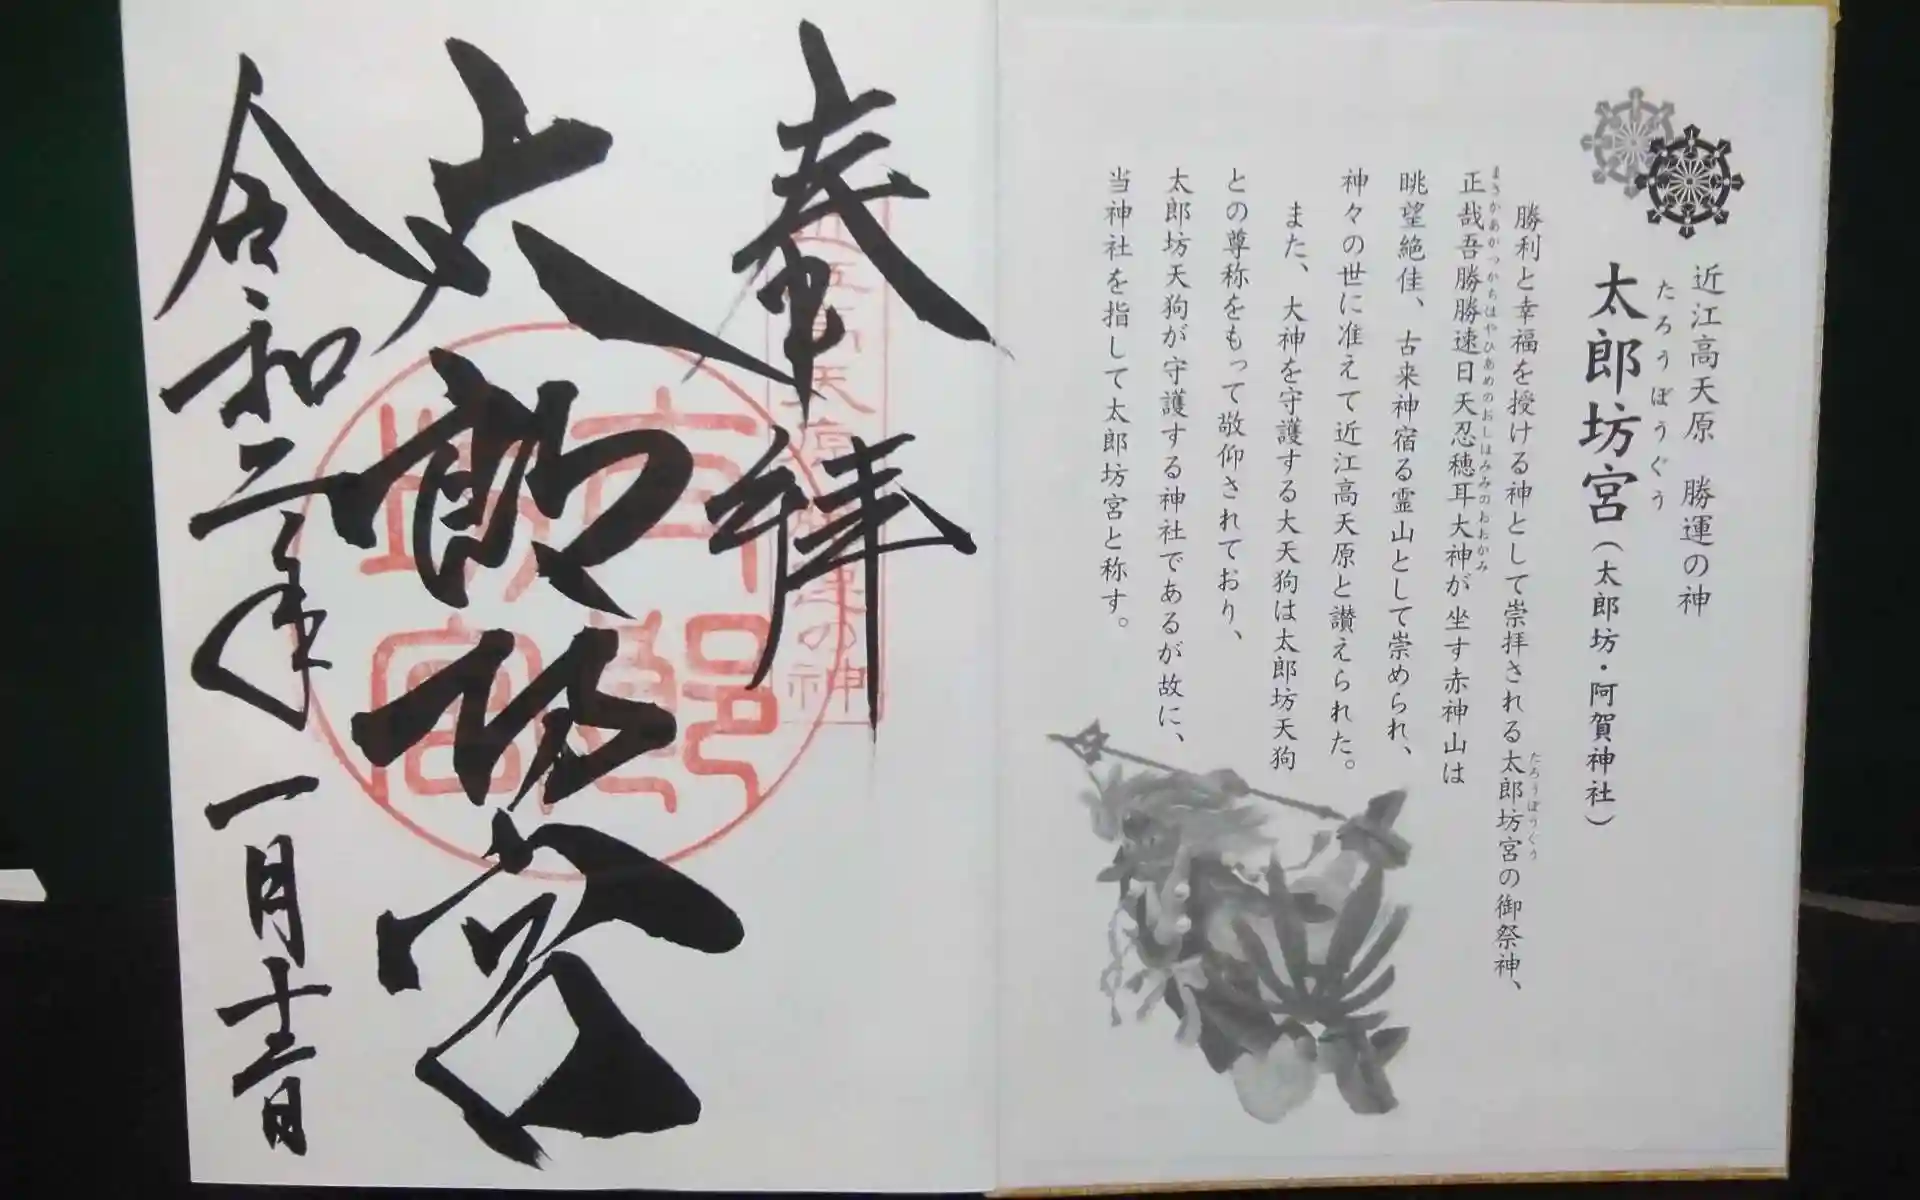 近江高天原 勝運の神
たろうぼうぐう
太郎坊宮（太郎坊・阿賀神社）
勝利と幸福を授ける神として崇拝される太郎坊宮の御祭神、
たろうぼうぐう
正哉吾勝勝速日天忍穂耳大神が坐す赤神山は
まさかあかつかちはやひあめのおしほみみのおおかみ
眺望絶佳、古来神宿る霊山として崇められ、
神々の世に准えて近江高天原と讃えられた。
また、大神を守護する大天狗は太郎坊天狗
との尊称をもって敬仰されており、
太郎坊天狗が守護する神社であるが故に、
当神社を指して太郎坊宮と称す。
奉拝
太郎坊宮
令和二年一月十二日
太郎
坊宮